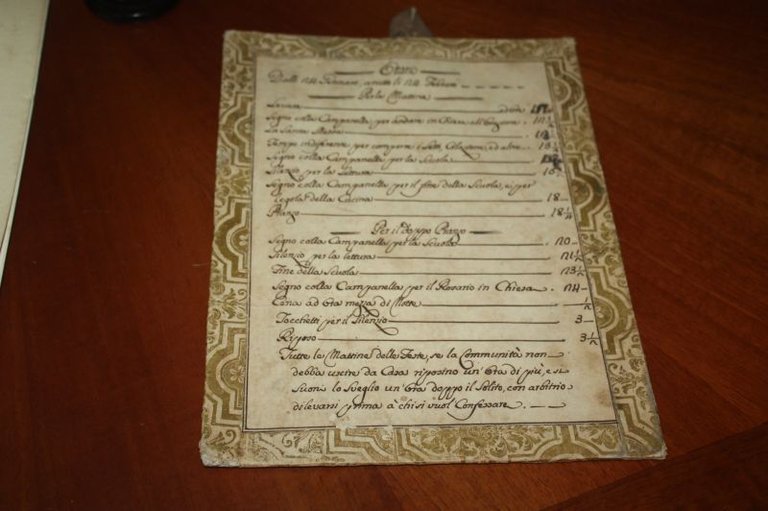 Estate
Per la Mattina
Levata
Segno colla Campanella, per andare in Chiesa
La Santa Messa
Tempo indiferente per comporre i Letti, Colezione, ed altro
Segno colla Campanella per la Scuola
Silenzio per la lettura 16
Segno colla Campanella per il fine della Scuola, e per
regola della Cucina 18
Pranzo 18 1/4
Per il doppo Pranzo
Segno colla Campanella per la Scuola 20
Silenzio per la lettura 21 1/2
Fine della Scuola 23 1/2
Segno colla Campanella per il Rosario in Chiesa. 24
Cena ad Ora mezza di Notte 1/2
Tocchetti per il Silenzio 3
Riposo 3 1/2
Tutte le Mattine delle Feste, se la Communità non
debba uscire da Casa riposino un'Ora di più, e si
suoni lo sveglio un'Ora doppo il Solito, con arbitrio
di levarsi prima à chi si vuol Confessare.